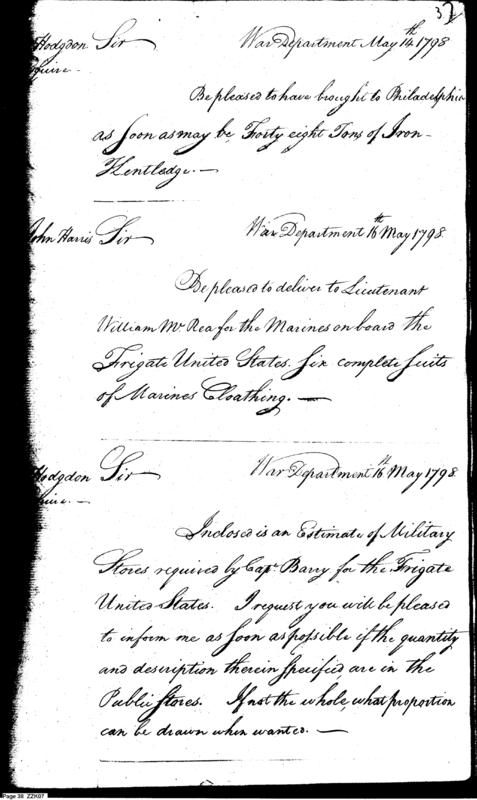 32
Hodgdon Sir War Department May 14th 1798
quire
Be pleased to have brought to Philadelphia
as soon as may be, Forty eight Tons of Iron
Kentledge.—
John Harris Sir War Department 16th May 1798.
Be pleased to deliver to Lieutenant
William Mc Rea for the Marines on board the
Frigate United States. Six complete Suits
of Marines Cloathing.—
Hodgdon Sir War Department 16th May 1798.
quire.—
Inclosed is an Estimate of Military
Stores required by Capt. Barry for the Frigate
United States. I request you will be pleased
to inform me as soon as possible if the quantity
and description therein specified, are in the
Public Stores. If not the whole, what proportion
can be drawn when wanted.—
Page 38 ZZK07